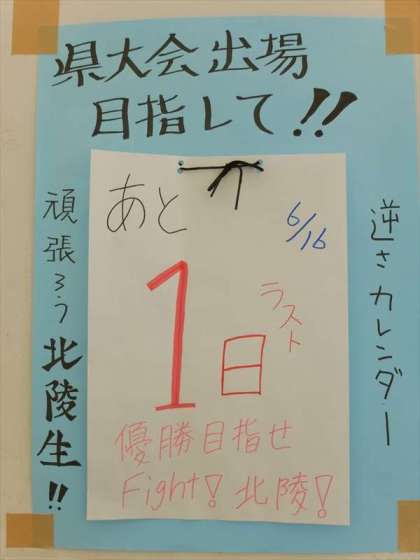 県大会出場
目指して!!
逆さカレンダー
頑張ろう北陵生!!
あと
6/16
1日
ラスト
優勝目指せ
Fight! 北陵!